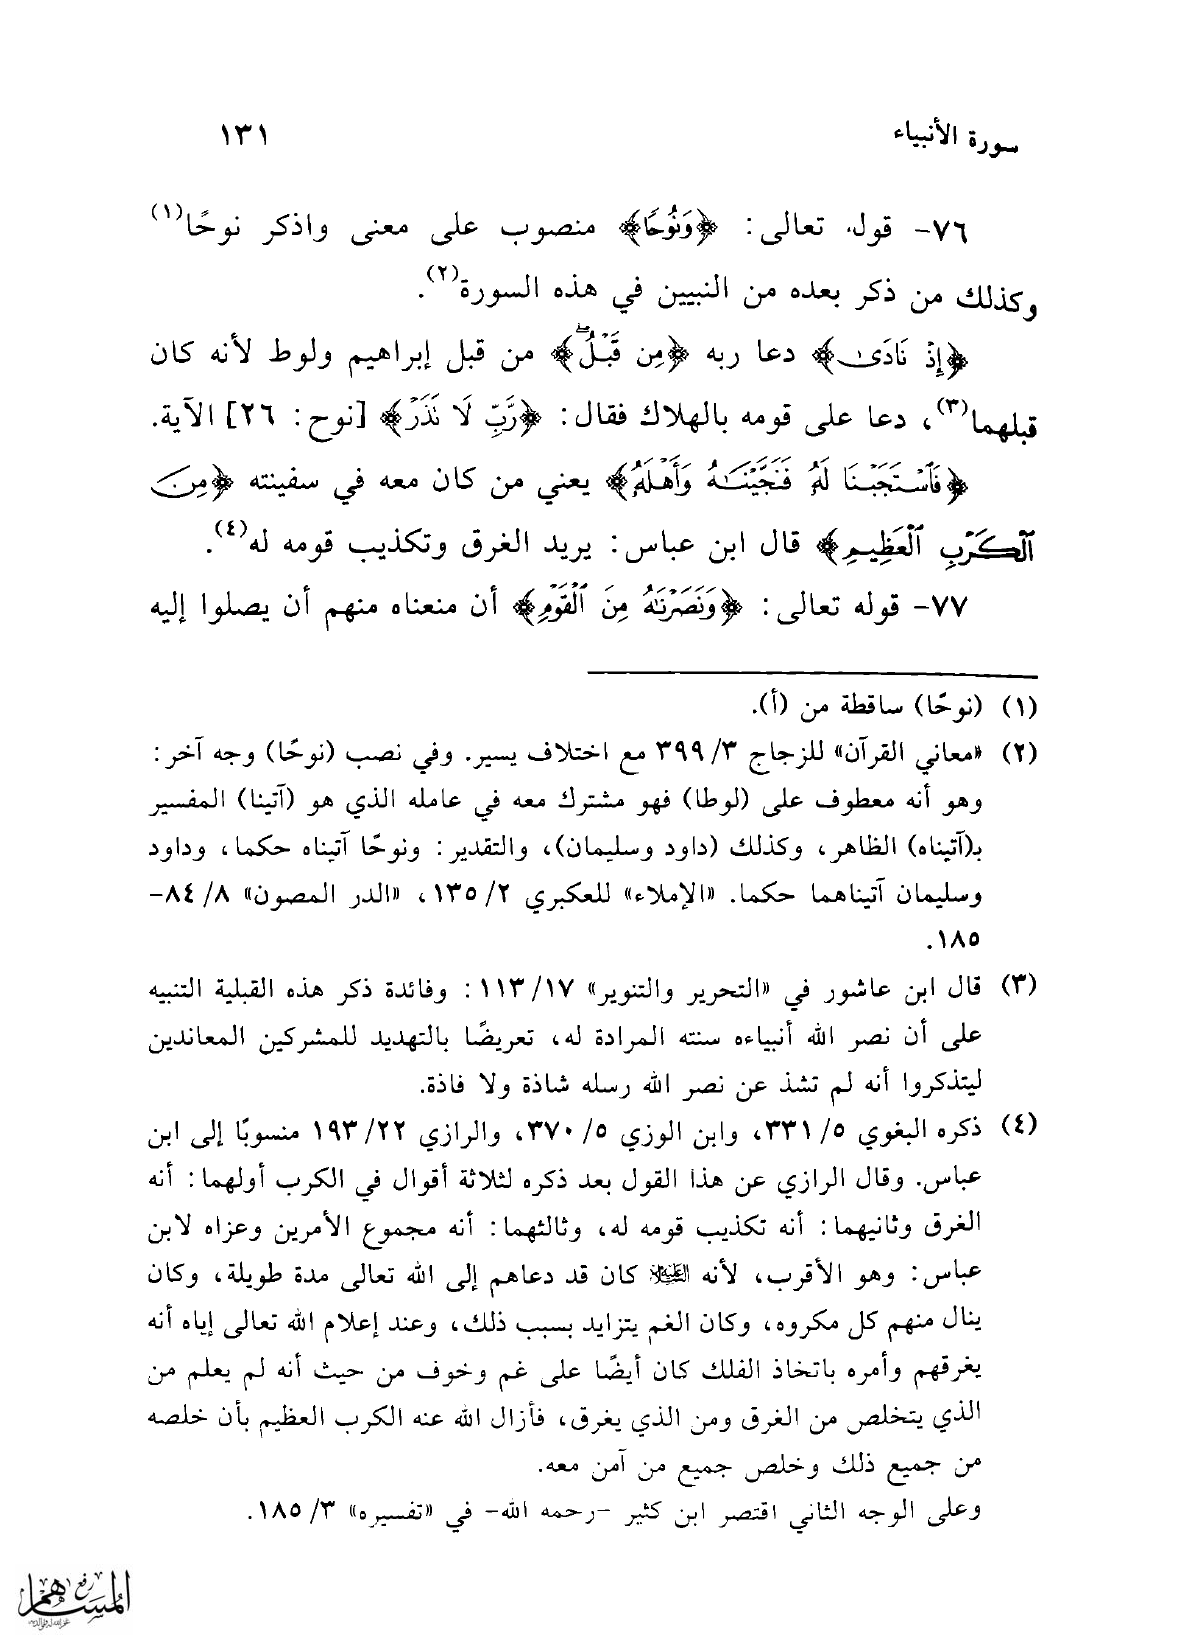 سورة الأنبياء ١٣١
٧٦- قول تعالى: ﴿وَنُوحًا﴾ منصوب على معنى واذكر نوحًا(١)
وكذلك من ذكر بعده من النبيين في هذه السورة(٢).
﴿إِذْ نَادَىٰ﴾ دعا ربه ﴿مِن قَبْلُ ۖ﴾ من قبل إبراهيم ولوط لأنه كان
قبلهما(٣)، دعا على قومه بالهلاك فقال: ﴿رَّبِّ لَا نَذَرْ﴾ [نوح: ٢٦] الآية.
﴿فَٱسْتَجَبْنَا لَهُۥ فَنَجَّيْنَـٰهُ وَأَهْلَهُۥ﴾ يعني من كان معه في سفينته ﴿مِنَ
ٱلْكَرْبِ ٱلْعَظِيمِ﴾ قال ابن عباس: يريد الغرق وتكذيب قومه له(٤).
٧٧- قوله تعالى: ﴿وَنَصَرْنَـٰهُ مِنَ ٱلْقَوْمِ﴾ أن منعناه منهم أن يصلوا إليه
(١) (نوحًا) ساقطة من (أ).
(٢) «معاني القرآن» للزجاج ٣/ ٣٩٩ مع اختلاف يسير. وفي نصب (نوحًا) وجه آخر:
وهو أنه معطوف على (لوطا) فهو مشترك معه في عامله الذي هو (آتينا) المفسير
بـ(آتيناه) الظاهر، وكذلك (داود وسليمان)، والتقدير: ونوحًا آتيناه حكما، وداود
وسليمان آتيناهما حكما. «الإملاء» للعكبري ٢/ ١٣٥، «الدر المصون» ٨/ ٨٤-
١٨٥.
(٣) قال ابن عاشور في «التحرير والتنوير» ١٧/ ١١٣: وفائدة ذكر هذه القبلية التنبيه
على أن نصر الله أنبياءه سنته المرادة له، تعريضًا بالتهديد للمشركين المعاندين
ليتذكروا أنه لم تشذ عن نصر الله رسله شاذة ولا فاذة.
(٤) ذكره البغوي ٥/ ٣٣١، وابن الوزي ٥/ ٣٧٠، والرازي ٢٢/ ١٩٣ منسوبًا إلى ابن
عباس. وقال الرازي عن هذا القول بعد ذكره لثلاثة أقوال في الكرب أولهما: أنه
الغرق وثانيهما: أنه تكذيب قومه له، وثالثهما: أنه مجموع الأمرين وعزاه لابن
عباس: وهو الأقرب، لأنه عليه السلام كان قد دعاهم إلى الله تعالى مدة طويلة، وكان
ينال منهم كل مكروه، وكان الغم يتزايد بسبب ذلك، وعند إعلام الله تعالى إياه أنه
يغرقهم وأمره باتخاذ الفلك كان أيضًا على غم وخوف من حيث أنه لم يعلم من
الذي يتخلص من الغرق ومن الذي يغرق، فأزال الله عنه الكرب العظيم بأن خلصه
من جميع ذلك وخلص جميع من آمن معه.
وعلى الوجه الثاني اقتصر ابن كثير -رحمه الله- في «تفسيره» ٣/ ١٨٥.
رفع
المساهم